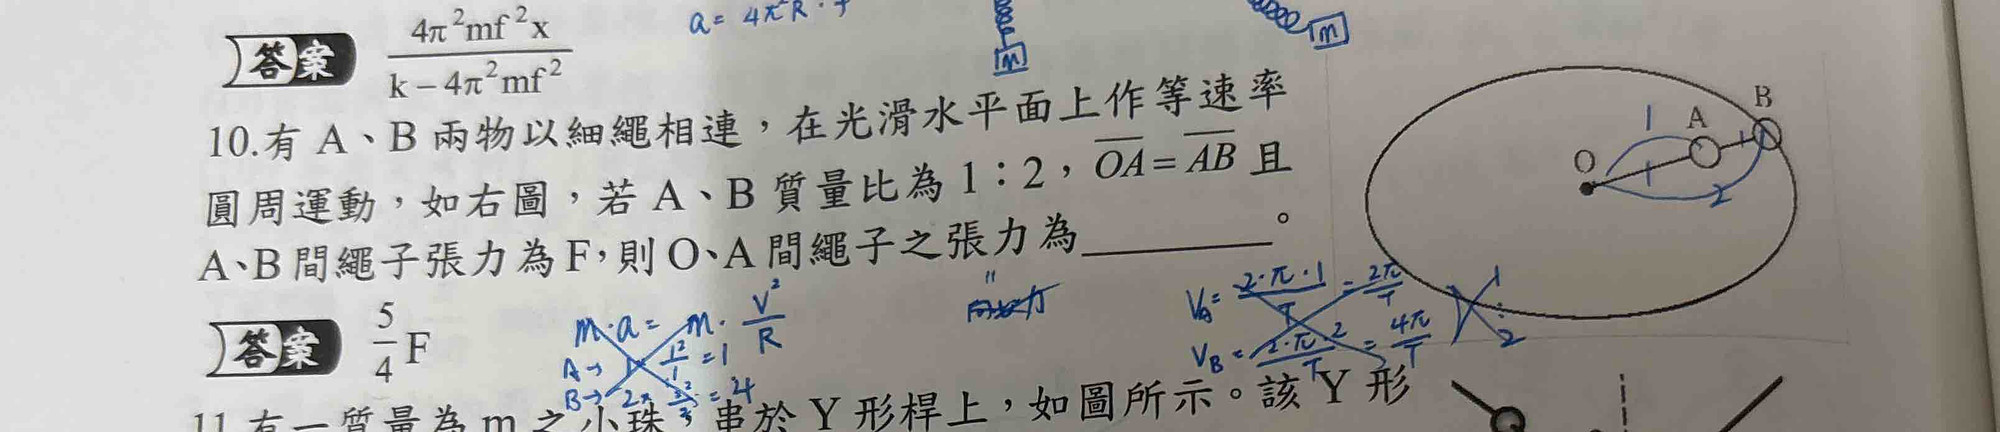 a = 4π²R · f
答案 4π²mf²x / k－4π²mf²
m
m
10.有 A、B 兩物以細繩相連，在光滑水平面上作等速率
圓周運動，如右圖，若 A、B 質量比為 1：2，OA = AB 且
A、B 間繩子張力為 F，則 O、A 間繩子之張力為＿＿＿＿＿。
O
A
B
1
1
1
2
答案 5/4 F
m·a = m · V²/R
A→ 1 1²/1 = 1
B→ 2
= 4
向
力
V_A = 2·π·1/T = 2π/T
V_B = 2·π·2/T = 4π/T
1:2
11.有一質量為 m 之小珠，串於 Y 形桿上，如圖所示。該 Y 形